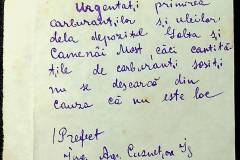 Urgentați primirea
carburanților și uleiilor
dela depozitul Golta și
Camenăi Most, căci cantită
țile de carburanți sosiți
nu se descarcă din
cauza că nu este loc
/Prefect
Ing. Agr.